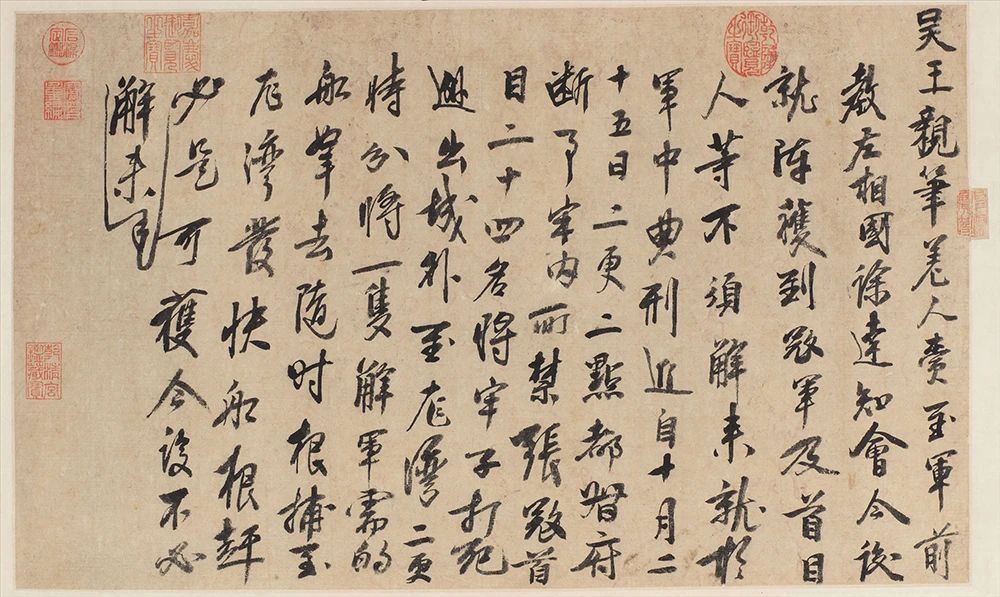 吳王親筆差人賫至軍前
教左相國徐達知會今後
就陣獲到寇軍及首目
人等不須解来就於
軍中典刑近自十月二
十五日二更二點都督府
断事牢內所禁張寇首
目二十四名將牢子打死
出城外至龙灣二更
時分將一隻解軍需的
船拏去隨时根捕至
龙灣發快船根赶
必是可獲今後不必
解来
乾隆御覽之寶
嘉慶御覽之寶